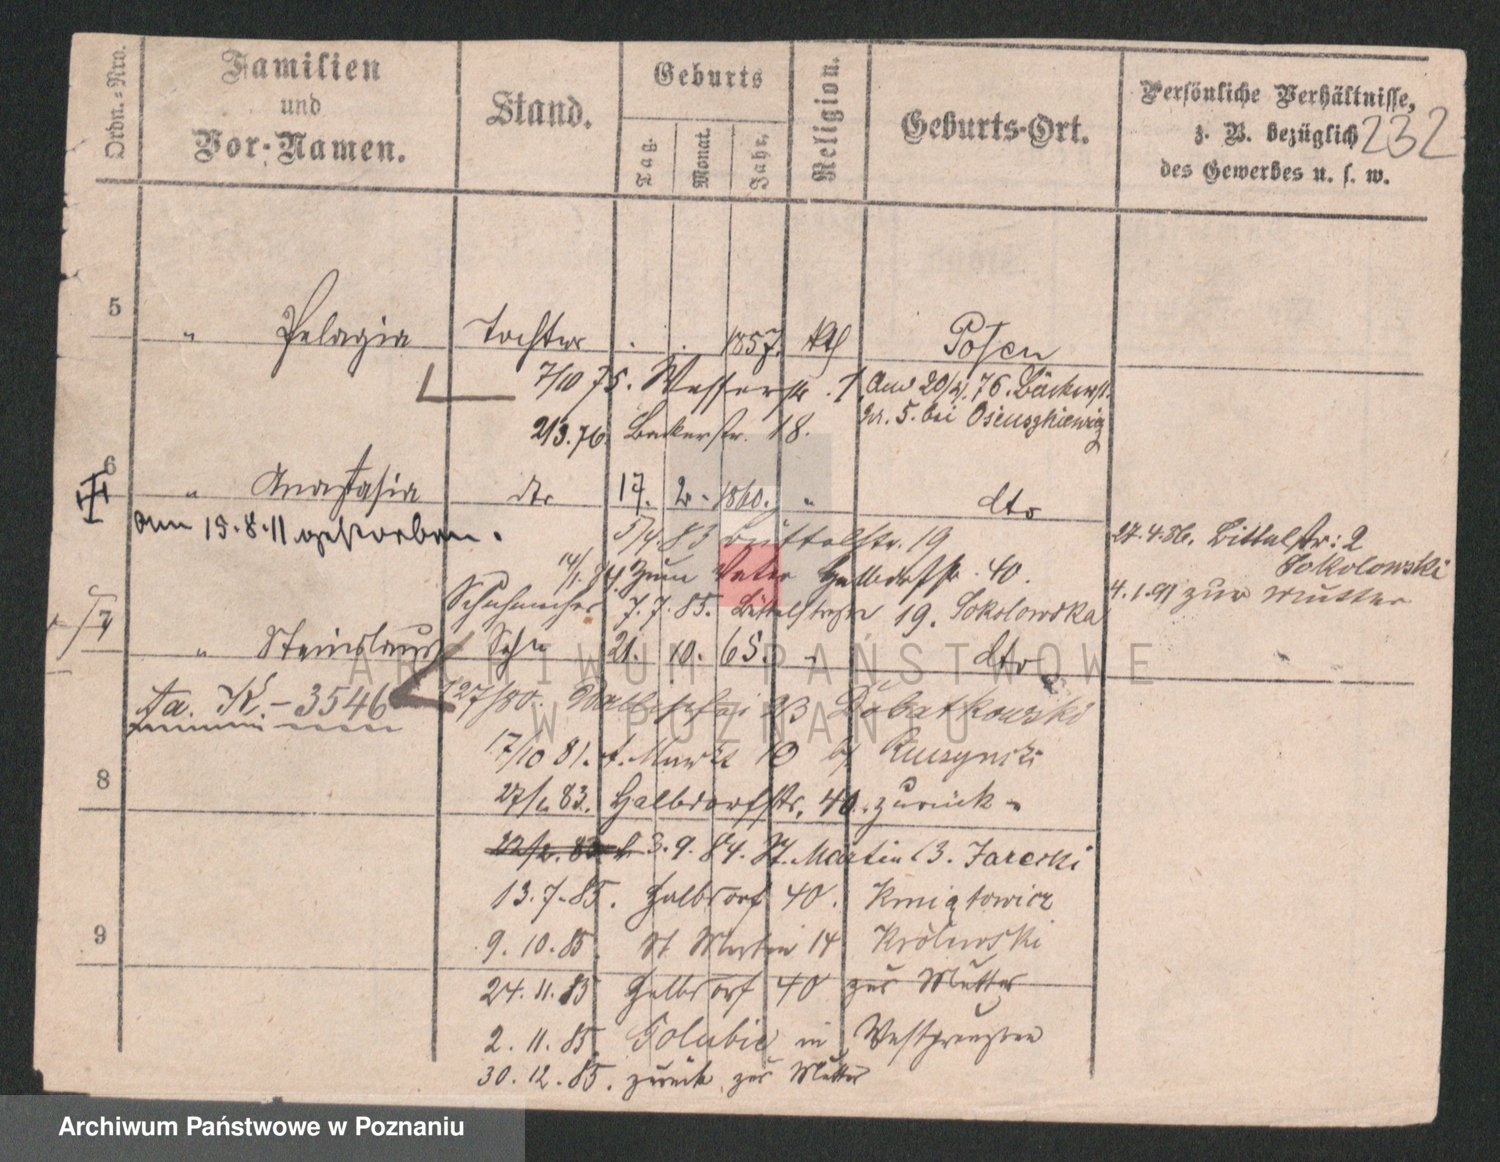 Ordn.-Nro.
Familien
und
Vor-Namen.
Stand.
Geburts
Tag.
Monat.
Jahr.
Religion.
Geburts-Ort.
Persönliche Verhältnisse,
z. B. bezüglich
des Gewerbes u. s. w.
232
5 " Pelagia Tochter . . 1857. kth Posen
7/10 75. Wasserstr. 1. Am 20/4. 76. Bäckerst.
Nr. 5. bei
21/3.76. Bäckerstr. 18.
6 " Anastasia dto 17. 2. 1860. " dto
am 15.8.11 gestorben.
5/4. 83 Büttelstr. 19
27.4.86. Büttelstr: 2
Sokolowski
14/1. 74. Zum Vater Halbdorfstr. 40.
4.1.91 zur Mutter
Schuhmacher 7.7.85. Büttelstraße 19. Sokolowska
7 " Stanislaus Sohn 21. 10. 65. " dto
fa. K. - 3546
27/ 80. 23 Dabatkowski
17/10 81. A. Markt 10 bei Ruszynski
27/ 83. Halbdorfstr. 40. zurück
8
3.9.84. St. Martin 13. Jarecki
13.7.85. Halbdorf 40. Kmiątowicz
9
9.10.85 St Martin 14 Królewski
24.11.85 Halbdorf 40 zur Mutter
2.11.85 Golubie in Westpreußen
30.12.85. zurück zur Mutter
ARCHIWUM PAŃSTWOWE
W POZNANIU
Archiwum Państwowe w Poznaniu